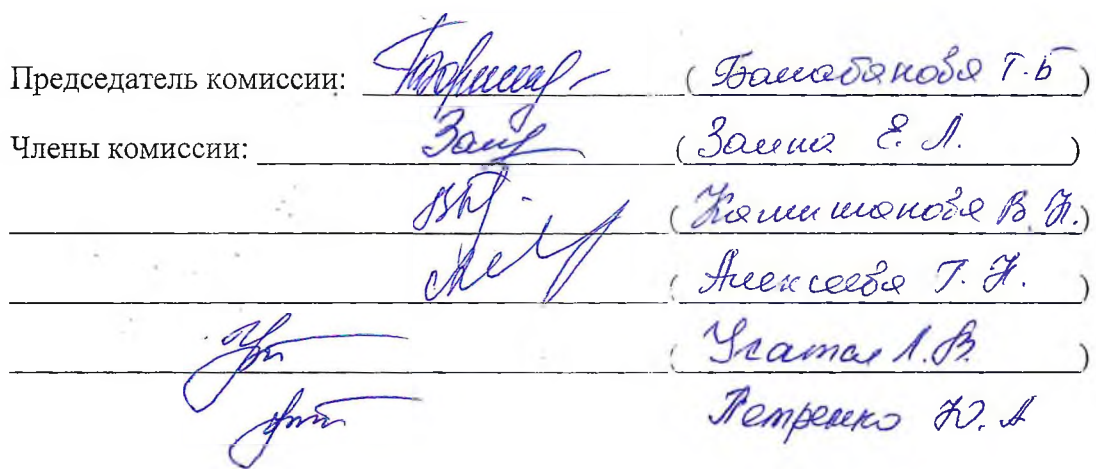 Председатель комиссии: ( Балабанова Т.Б )
Члены комиссии: ( Заика Е. Л. )
( Камышанова В. Н. )
( Алексеева Т. Н. )
( Усатая Л. В. )
Петренко Ю. А